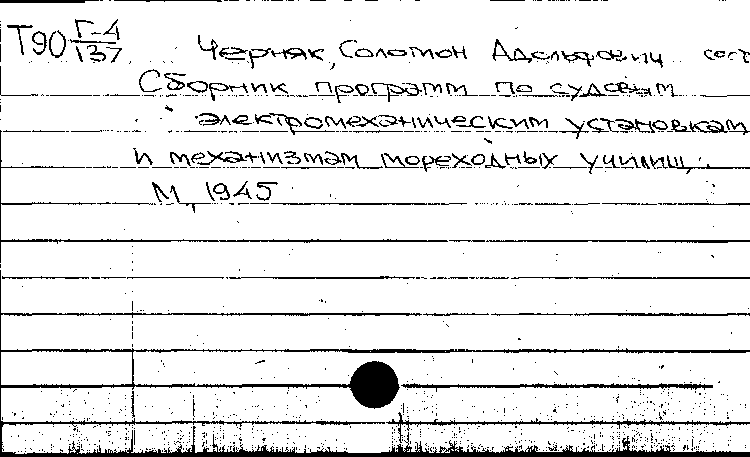 Т90 Г-4/137 Черняк, Соломон Адольфович сост
Сборник программ по судовым
электромеханическим установкам
и механизмам мореходных училищ.
М., 1945